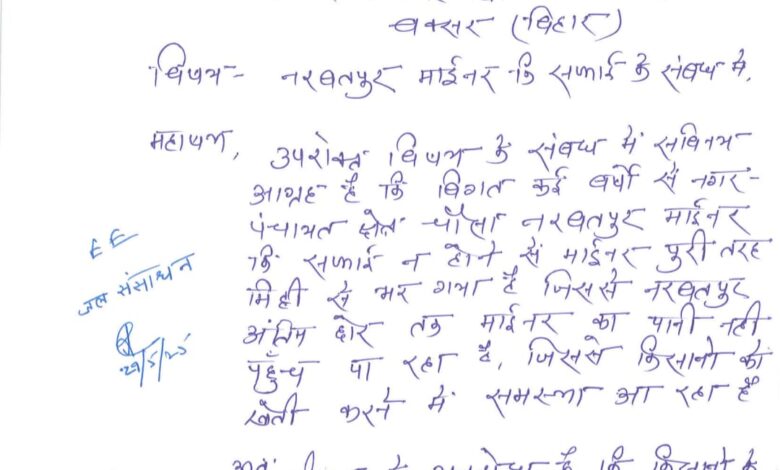 बक्सर (बिहार)
विषय- नरबतपुर माईनर कि सफाई के संबध मे.
महाषय,
उपरोक्त विषय के संबध में सविनय
आग्रह है कि विगत कई बर्षो से नगर-
पंचायत क्षेत्र चौसा नरबतपुर माईनर
कि सफाई न होने से माईनर पुरी तरह
मिट्टी से भर गया है जिससे नरबतपुर
अंतिम छोर तक माईनर का पानी नही
पहुँच पा रहा है, जिससे किसानो को
खेती करने में समस्या आ रहा है
EE
जल संसाधन
29/5/25
अतः